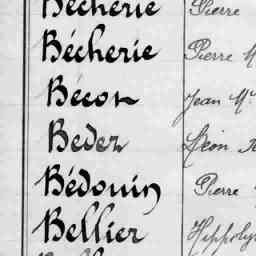 Bécherie Pierre
Bécherie Pierre M
Bécot Jean M.
Beder Léon
Bédouin Pierre
Bellier Hippoly